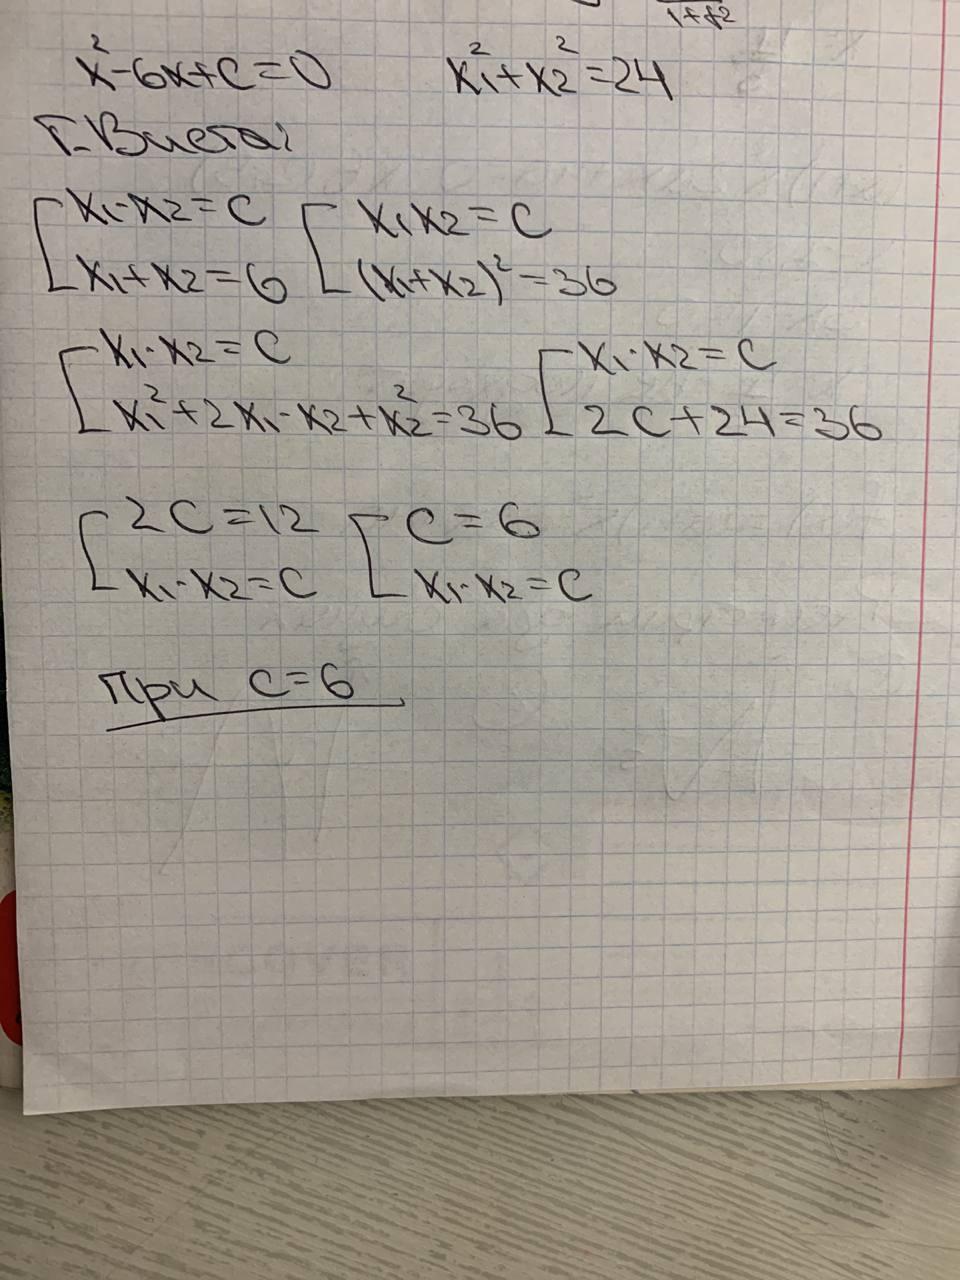 1+f2
x²-6x+c=0 x₁²+x₂²=24
Т-Виета:
[x₁·x₂=c [x₁x₂=c
x₁+x₂=6 (x₁+x₂)²=36
[x₁·x₂=c [x₁·x₂=c
x₁²+2x₁·x₂+x₂²=36 2c+24=36
[2c=12 [c=6
x₁·x₂=c x₁·x₂=c
при c=6